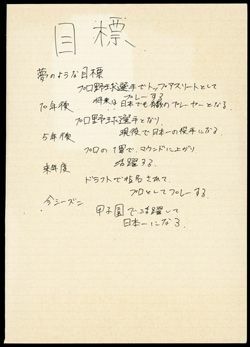 目標
夢のような目標
プロ野球選手でトップアスリートとして
プレーする
10年後
将来は日本でも有数のプレーヤーとなる。
プロ野球選手となり、
5年後
現役で日本一の投手になる
プロの1軍で、マウンドに上がり
来年度
活躍する。
ドラフトで指名されて、
プロとしてプレーする
今シーズン
甲子園で活躍して
日本一になる。